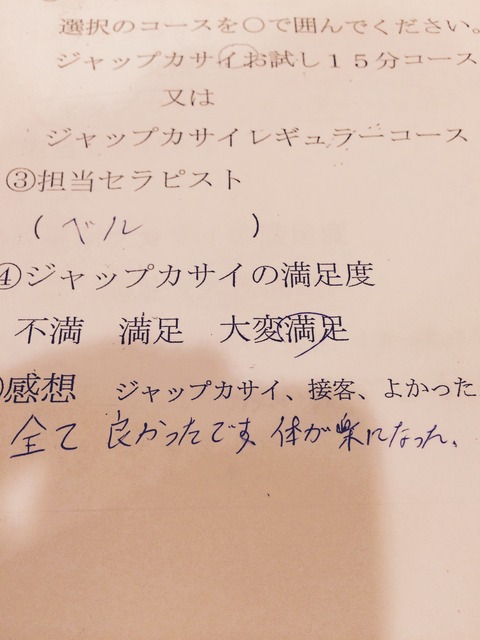 選択のコースを○で囲んでください。
ジャップカサイお試し１５分コース
又は
ジャップカサイレギュラーコース
③担当セラピスト
(ベル)
④ジャップカサイの満足度
不満 満足 大変満足
感想 ジャップカサイ、接客、よかった
全て 良かったです 体が楽になった。